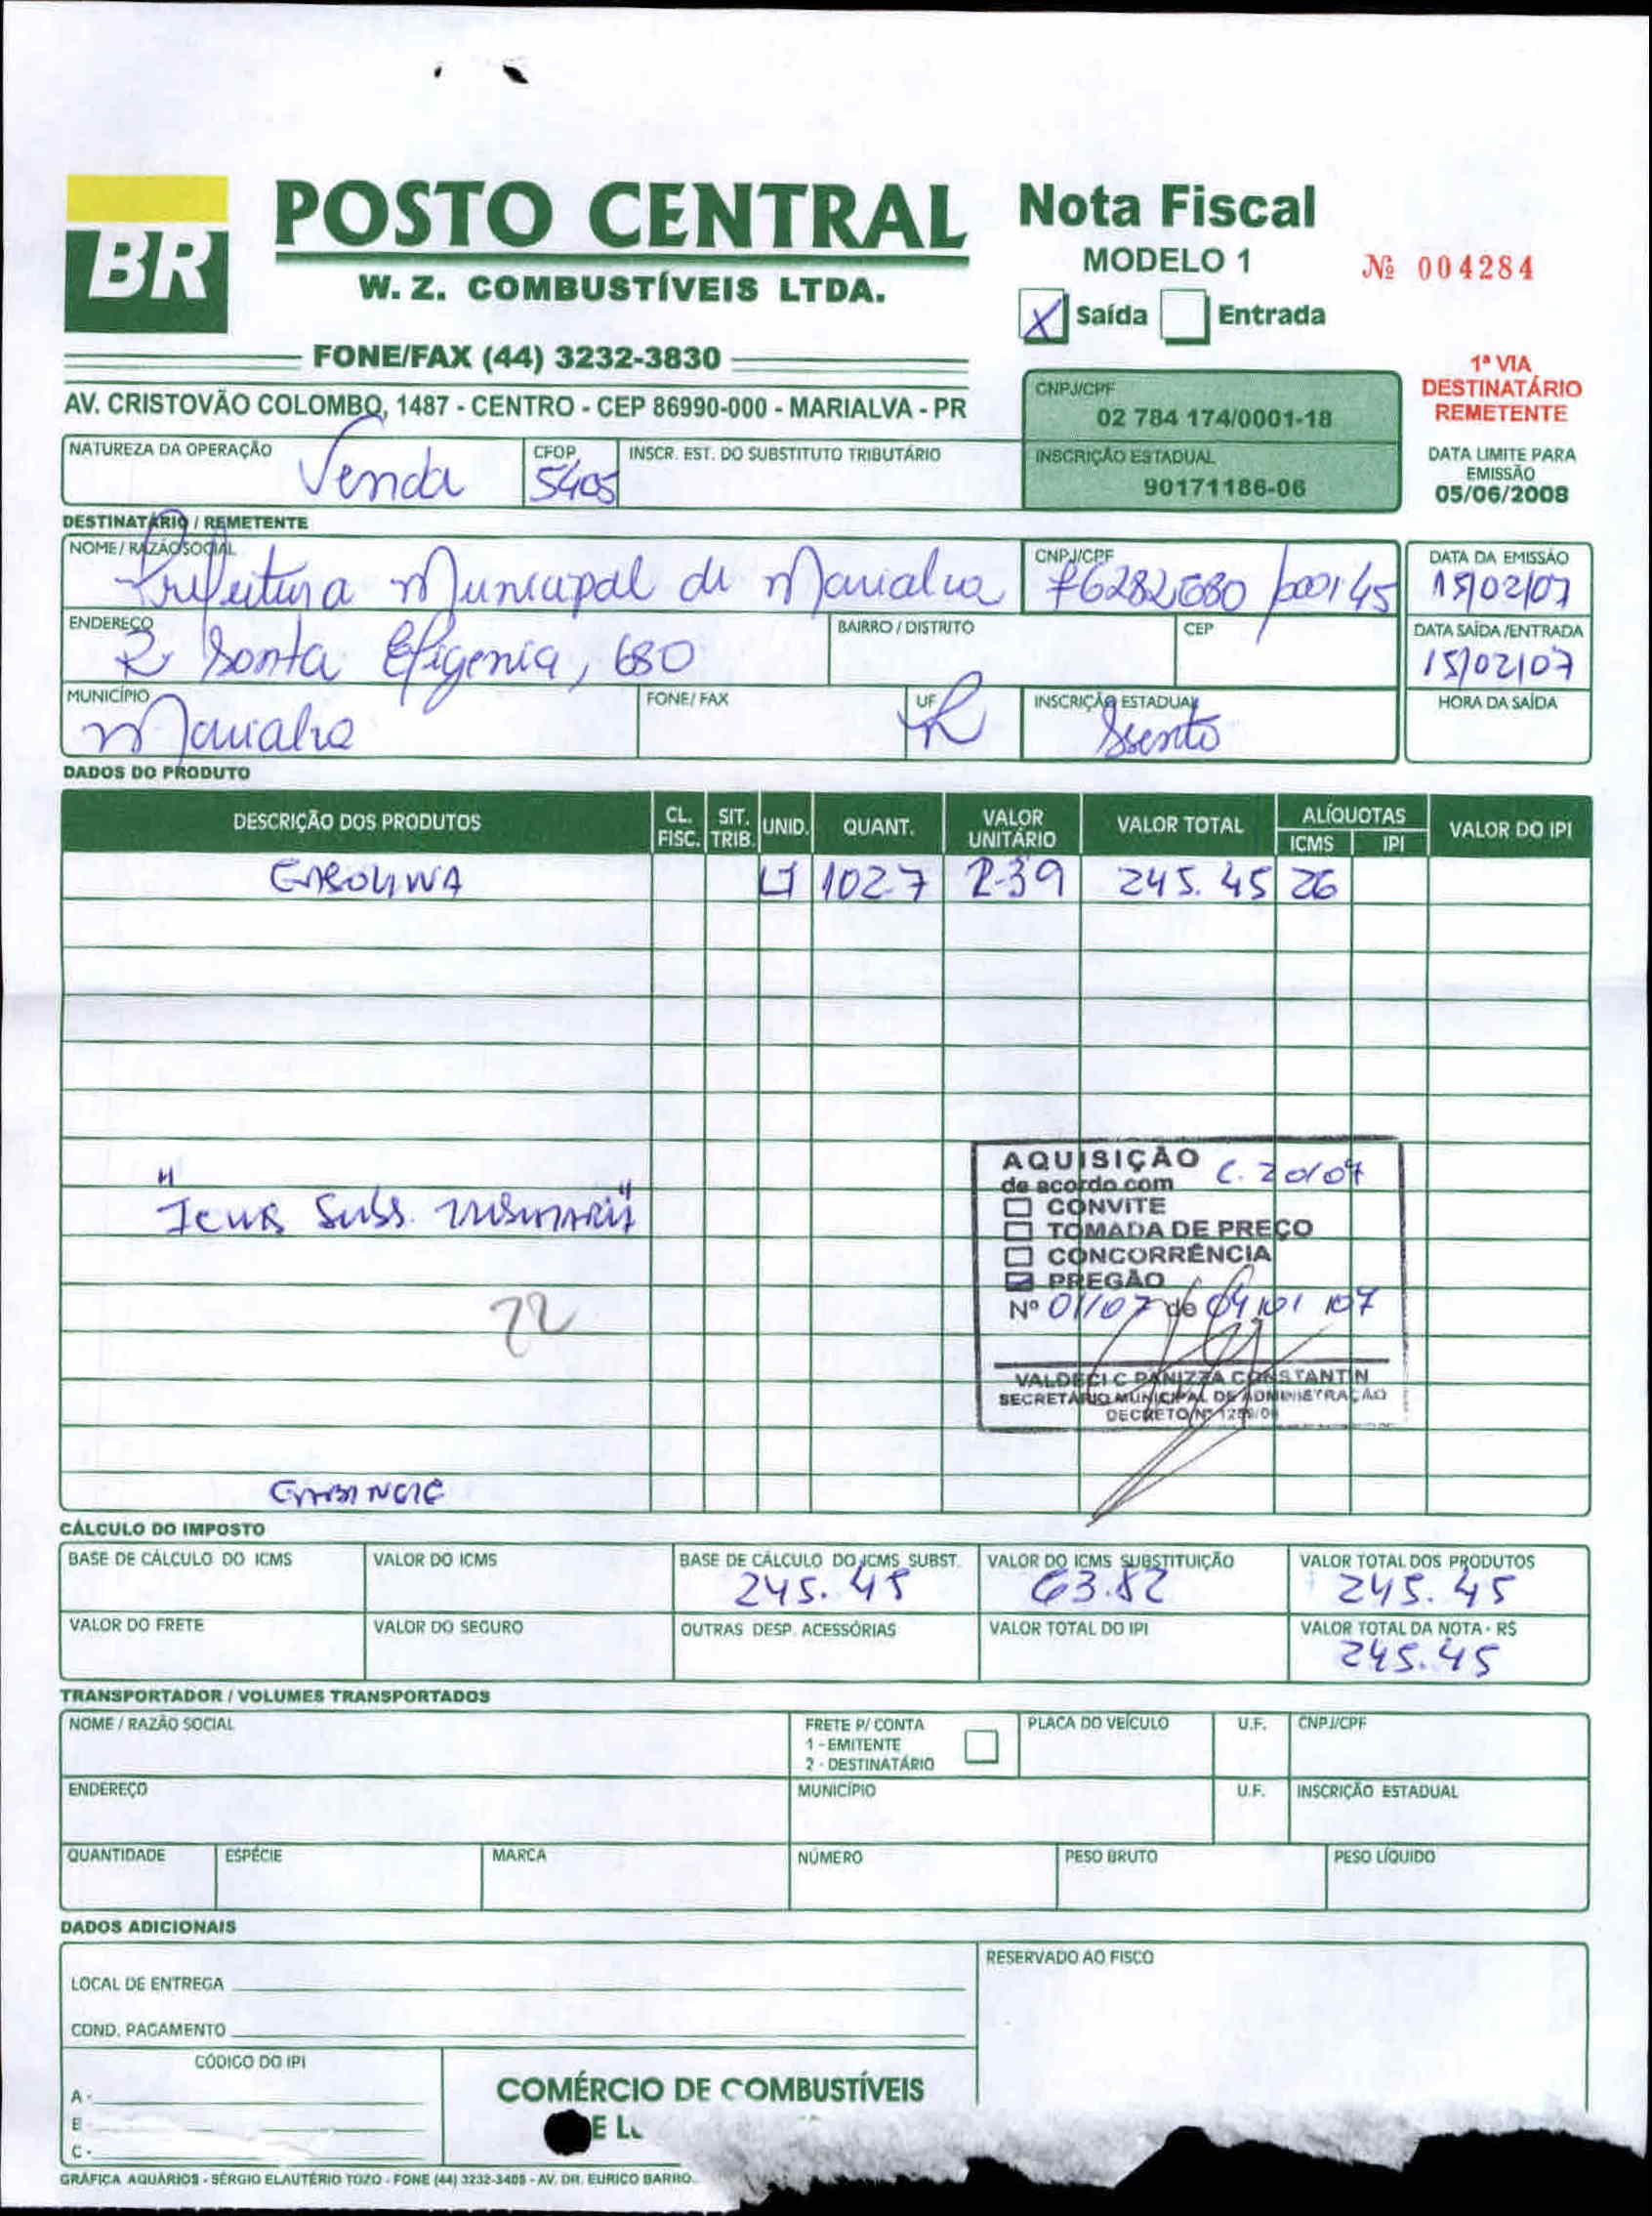 BR
POSTO CENTRAL
W. Z. COMBUSTÍVEIS LTDA.
FONE/FAX (44) 3232-3830
AV. CRISTOVÃO COLOMBO, 1487 - CENTRO - CEP 86990-000 - MARIALVA - PR
Nota Fiscal
MODELO 1
Nº 004284
X Saída Entrada
1ª VIA
DESTINATÁRIO
REMETENTE
CNPJ/CPF
02 784 174/0001-18
INSCRIÇÃO ESTADUAL
90171186-06
DATA LIMITE PARA
EMISSÃO
05/06/2008
NATUREZA DA OPERAÇÃO
Venda
CFOP
5405
INSCR. EST. DO SUBSTITUTO TRIBUTÁRIO
DESTINATÁRIO / REMETENTE
NOME / RAZÃO SOCIAL
Prefeitura Municipal de Marialva
CNPJ/CPF
76282680/000145
DATA DA EMISSÃO
15/02/07
ENDEREÇO
R Santa Efigenia, 680
BAIRRO / DISTRITO
CEP
DATA SAÍDA /ENTRADA
15/02/07
MUNICÍPIO
Marialva
FONE/ FAX
UF
PR
INSCRIÇÃO ESTADUAL
Isento
HORA DA SAÍDA
DADOS DO PRODUTO
DESCRIÇÃO DOS PRODUTOS CL. FISC. SIT. TRIB. UNID. QUANT. VALOR UNITÁRIO VALOR TOTAL ALÍQUOTAS ICMS IPI VALOR DO IPI
GASOLINA LT 102.7 2.39 245.45 26
"ICMS Subs.
72
AQUISIÇÃO C. 20/07
de acordo com
CONVITE
TOMADA DE PREÇO
CONCORRÊNCIA
PREGÃO
Nº 01/07 de 04/01/07
VALDECI C PANIZZA CONSTANTIN
SECRETÁRIO MUNICIPAL DE ADMINISTRAÇÃO
DECRETO Nº
CÁLCULO DO IMPOSTO
BASE DE CÁLCULO DO ICMS
VALOR DO ICMS
BASE DE CÁLCULO DO ICMS SUBST.
245.45
VALOR DO ICMS SUBSTITUIÇÃO
63.82
VALOR TOTAL DOS PRODUTOS
245.45
VALOR DO FRETE
VALOR DO SEGURO
OUTRAS DESP. ACESSÓRIAS
VALOR TOTAL DO IPI
VALOR TOTAL DA NOTA - R$
245.45
TRANSPORTADOR / VOLUMES TRANSPORTADOS
NOME / RAZÃO SOCIAL
FRETE P/ CONTA
1 - EMITENTE
2 - DESTINATÁRIO
PLACA DO VEÍCULO
U.F.
CNPJ/CPF
ENDEREÇO
MUNICÍPIO
U.F.
INSCRIÇÃO ESTADUAL
QUANTIDADE
ESPÉCIE
MARCA
NÚMERO
PESO BRUTO
PESO LÍQUIDO
DADOS ADICIONAIS
LOCAL DE ENTREGA
COND. PAGAMENTO
RESERVADO AO FISCO
CÓDIGO DO IPI
A -
B -
C -
COMÉRCIO DE COMBUSTÍVEIS
E
GRÁFICA AQUÁRIOS - SÉRGIO ELAUTÉRIO TOZO - FONE (44) 3232-3405 - AV. DR. EURICO BARRO